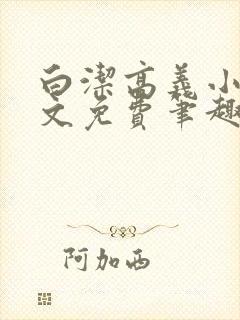 白潔高義小
文免費筆趣
阿加西